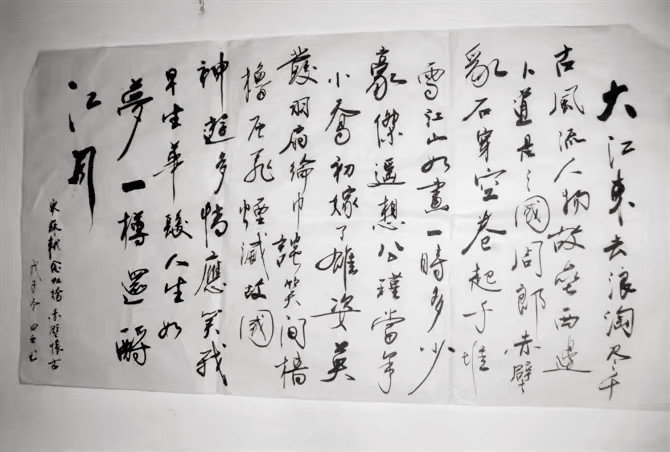 大江東去浪淘尽千
古風流人物故壘西邊
人道是三國周郎赤壁
亂石穿空卷起千堆
雪江山如畫一時多少
豪傑遥想公瑾當年
小喬初嫁了雄姿英
發羽扇綸巾談笑间樯
櫓灰飛煙滅故國
神遊多情應笑我
早生華髮人生如
夢一樽還酹
江月
宋蘇軾念奴嬌赤壁懷古
戊子冬